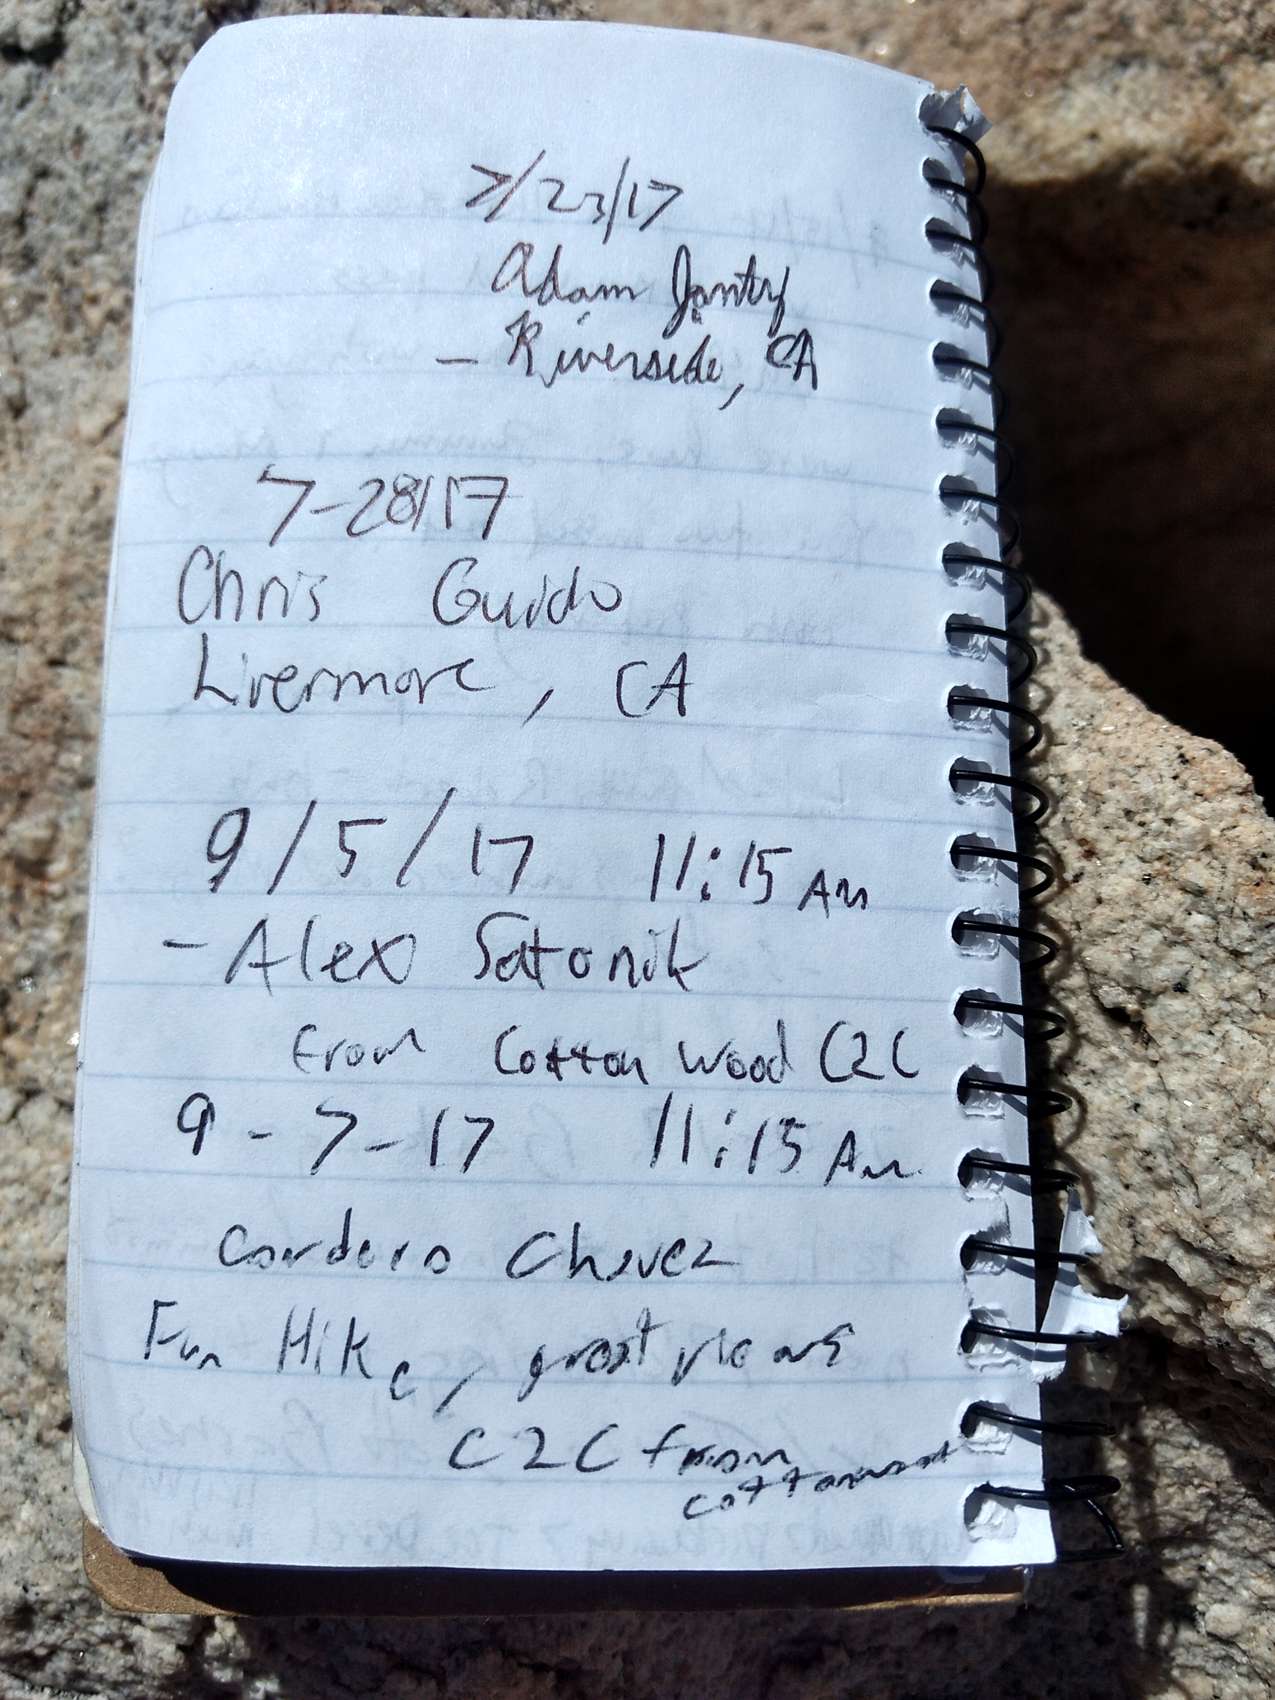 7/23/17
Adam Jantz
- Riverside, CA
7-28/17
Chris Guido
Livermore, CA
9/5/17 11:15 AM
- Alex Satonik
from Cottonwood C2C
9-7-17 11:15 AM
Cordero Chavez
Fun Hike, great views
C2C from
cottonwood